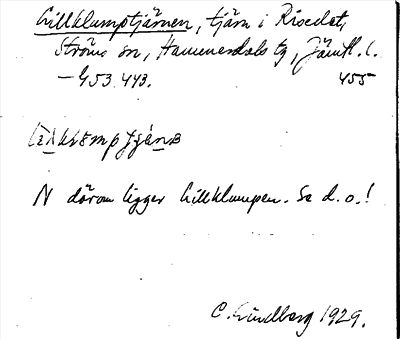 Lillklumptjärnen, tjärn i Risedet,
Ströms sn, Hammerdals tg, Jämtl. l.
— G53.443. 455
N därom ligger Lillklumpen. Se d.o.!
C. Lindberg 1929.